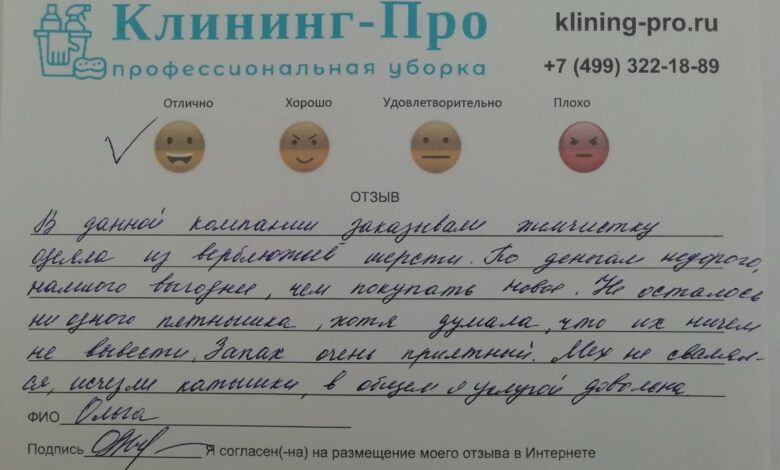 Клининг-Про
профессиональная уборка
klining-pro.ru
+7 (499) 322-18-89
Отлично Хорошо Удовлетворительно Плохо
ОТЗЫВ
В данной компании заказывали химчистку
одеяла из верблюжьей шерсти. По деньгам недорого,
намного выгоднее, чем покупать новое. Не осталось
ни одного пятнышка, хотя думала, что их ничем
не вывести. Запах очень приятный. Мех не свалял-
ся, исчезли катышки, в общем я услугой довольна
ФИО Ольга
Подпись Я согласен(-на) на размещение моего отзыва в Интернете